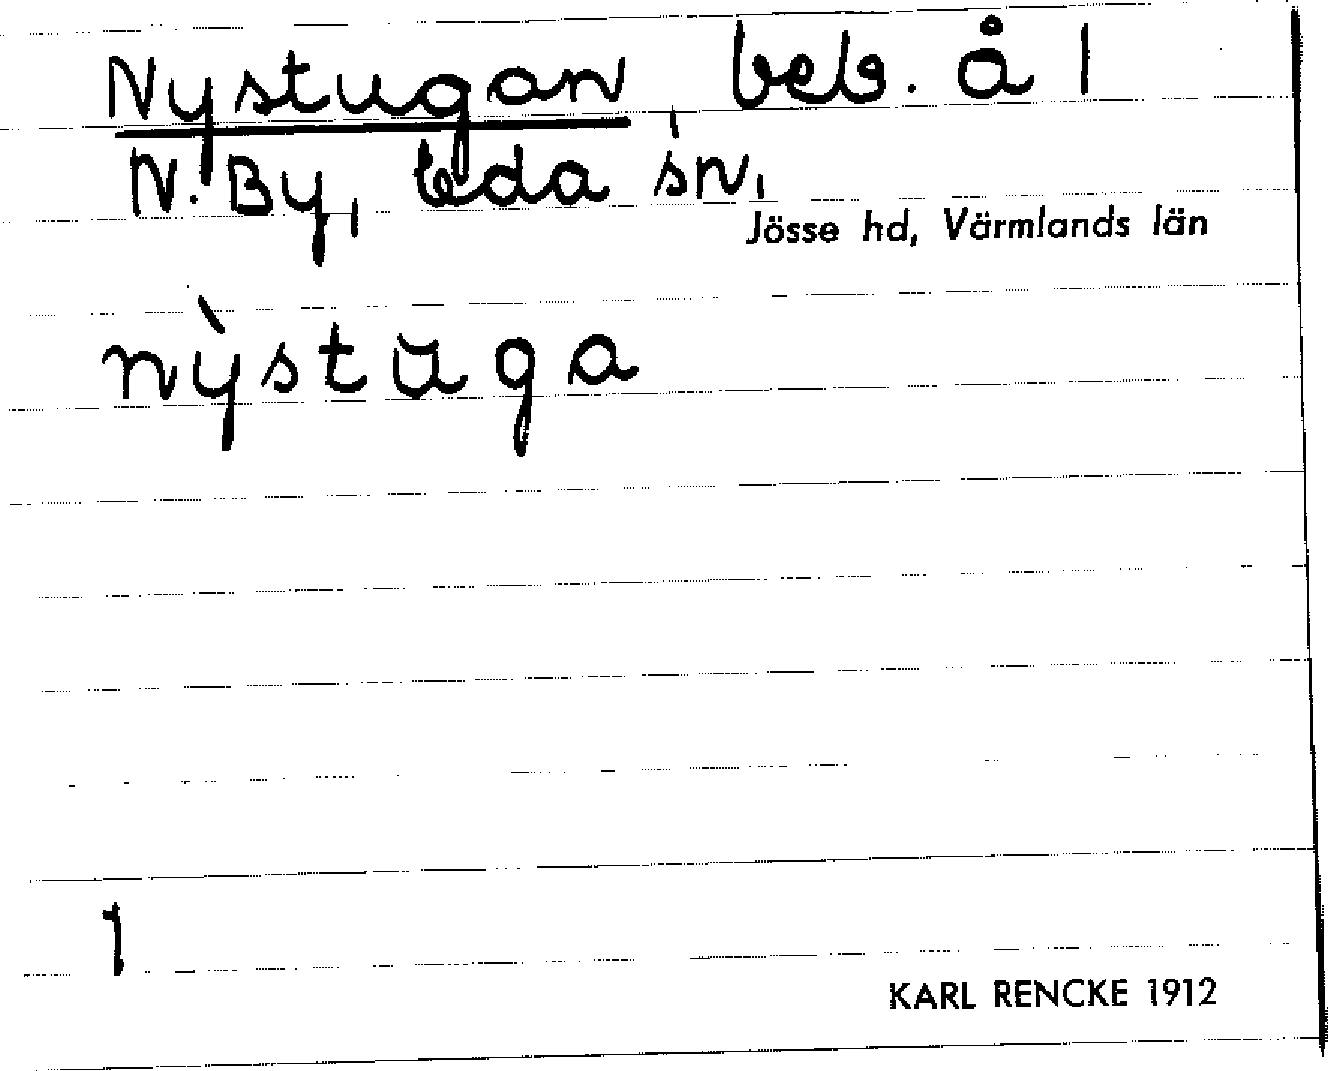 Nystugan, beb. å 1
N. By, Eda sn,
Jösse hd, Värmlands län
nỳstŭga
1
KARL RENCKE 1912